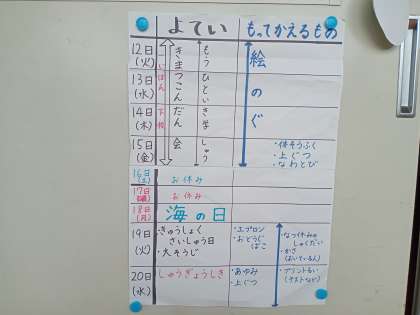 よてい
もってかえるもの
12日
(火)
13日
(水)
14日
(木)
15日
(金)
下校
きまつこんだん会
もうひとい
絵のぐ
・体そうふく
・上ぐつ
・なわとび
16日
(土)
お休み
17日
(日)
お休み
18日
(月)
海の日
19日
(火)
・きゅうしょく
さいしゅう日
・大そうじ
・エプロン
・おどうぐ
ばこ
・なつ休みの
しゅくだい
・かさ
(おいているん)
20日
(水)
しゅうぎょうしき
・あゆみ
・上ぐつ
・プリントるい
(テストなど)